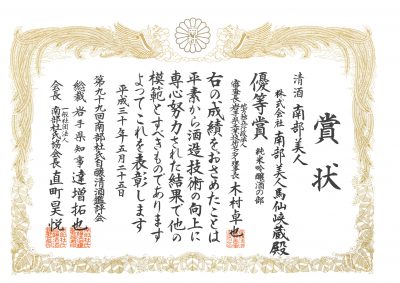 賞状
清酒 南部美人
株式会社 南部美人馬仙峡蔵殿
優等賞 純米吟醸酒の部
木村卓也
右の成績をおさめたことは
平素から酒造技術の向上に
専心努力された結果で他の
模範とすべきものであります
よってこれを表彰します
平成三十年五月二十五日
第九十九回南部杜氏自醸清酒鑑評会
総裁 岩手県知事 達増拓也
一般社団法人
会長 南部杜氏協会会長 直町昊悦